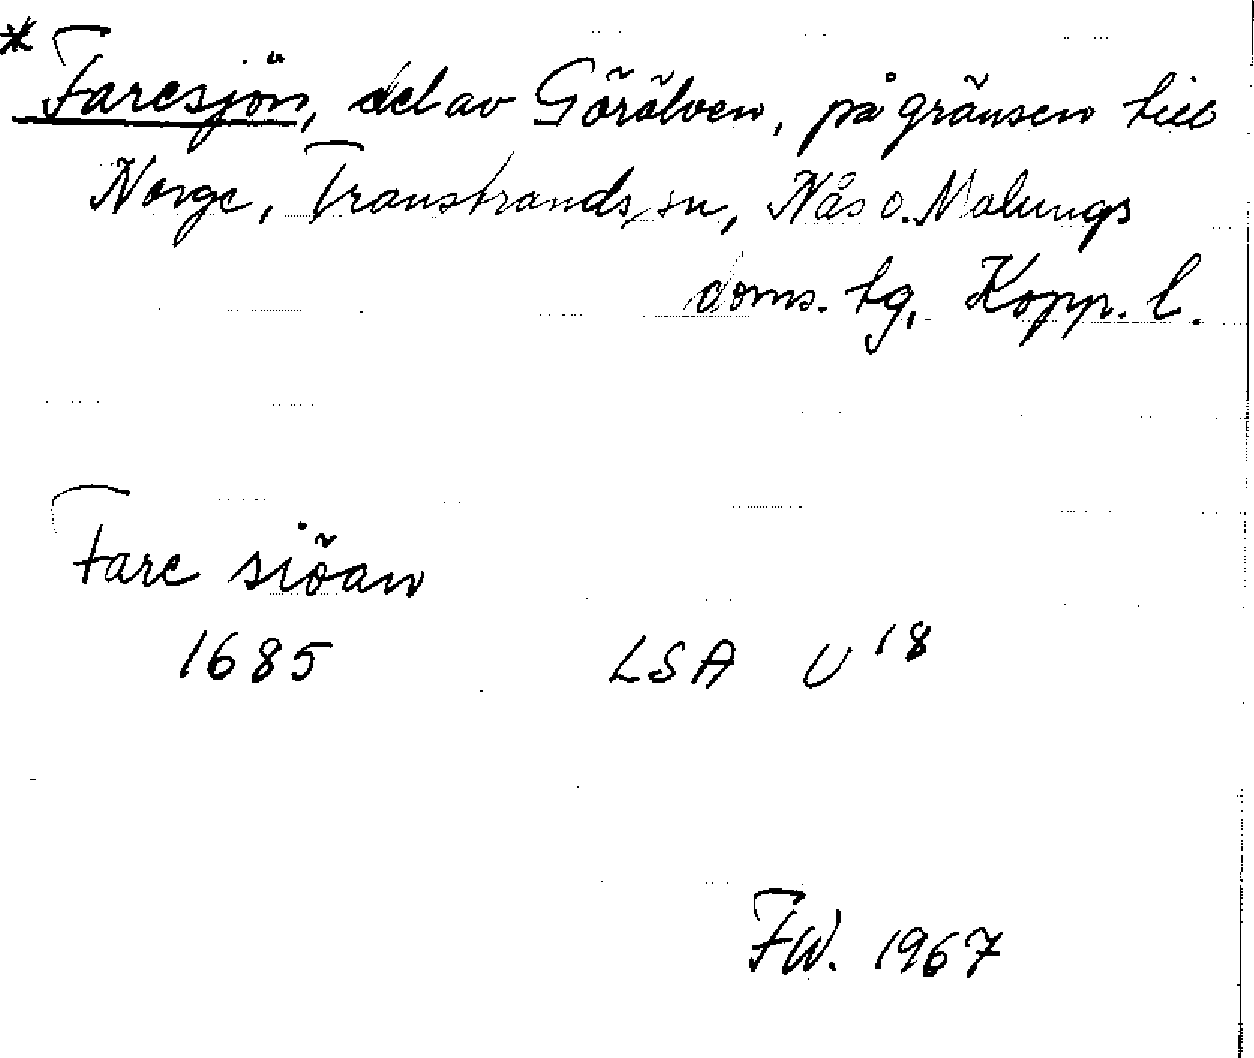 * Faresjön, del av Görälven, på gränsen till
Norge, Transtrands sn, Nås o. Malungs
doms. tg, Kopp. l.
Fare siöan
1685 LSA U 18
FW. 1967